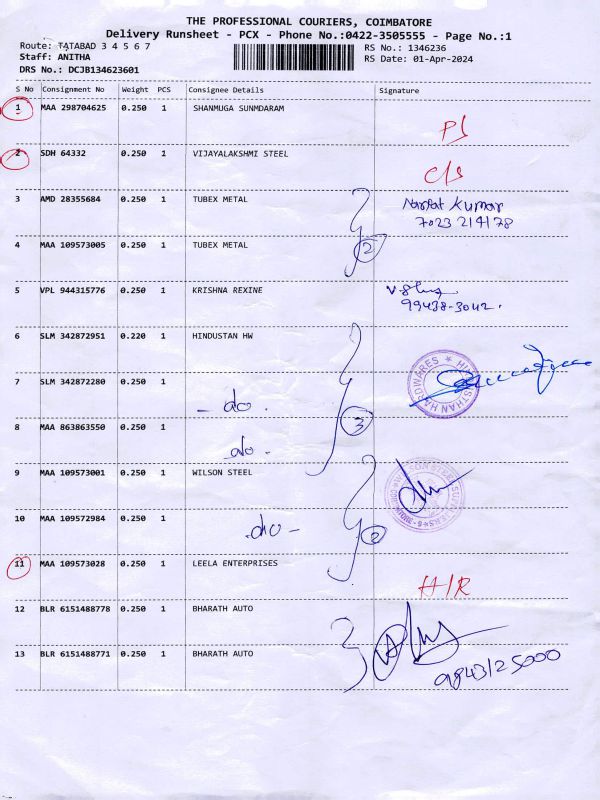 THE PROFESSIONAL COURIERS, COIMBATORE
Delivery Runsheet - PCX - Phone No.:0422-3505555 - Page No.:1
Route: TATABAD 3 4 5 6 7
RS No.: 1346236
Staff: ANITHA
RS Date: 01-Apr-2024
DRS No.: DCJB134623601
S No Consignment No Weight PCS Consignee Details Signature
1 MAA 298704625 0.250 1 SHANMUGA SUNMDARAM
P/S
2 SDH 64332 0.250 1 VIJAYALAKSHMI STEEL
C/S
3 AMD 28355684 0.250 1 TUBEX METAL Kumar
7023 214178
4 MAA 109573005 0.250 1 TUBEX METAL 2
5 VPL 944315776 0.250 1 KRISHNA REXINE
99438-3042.
6 SLM 342872951 0.220 1 HINDUSTAN HW
HARDWARES
7 SLM 342872280 0.250 1
- do .
3
8 MAA 863863550 0.250 1
do.
9 MAA 109573001 0.250 1 WILSON STEEL
10 MAA 109572984 0.250 1
-do - 2
11 MAA 109573028 0.250 1 LEELA ENTERPRISES
H/R
12 BLR 6151488778 0.250 1 BHARATH AUTO
13 BLR 6151488771 0.250 1 BHARATH AUTO
9843125000